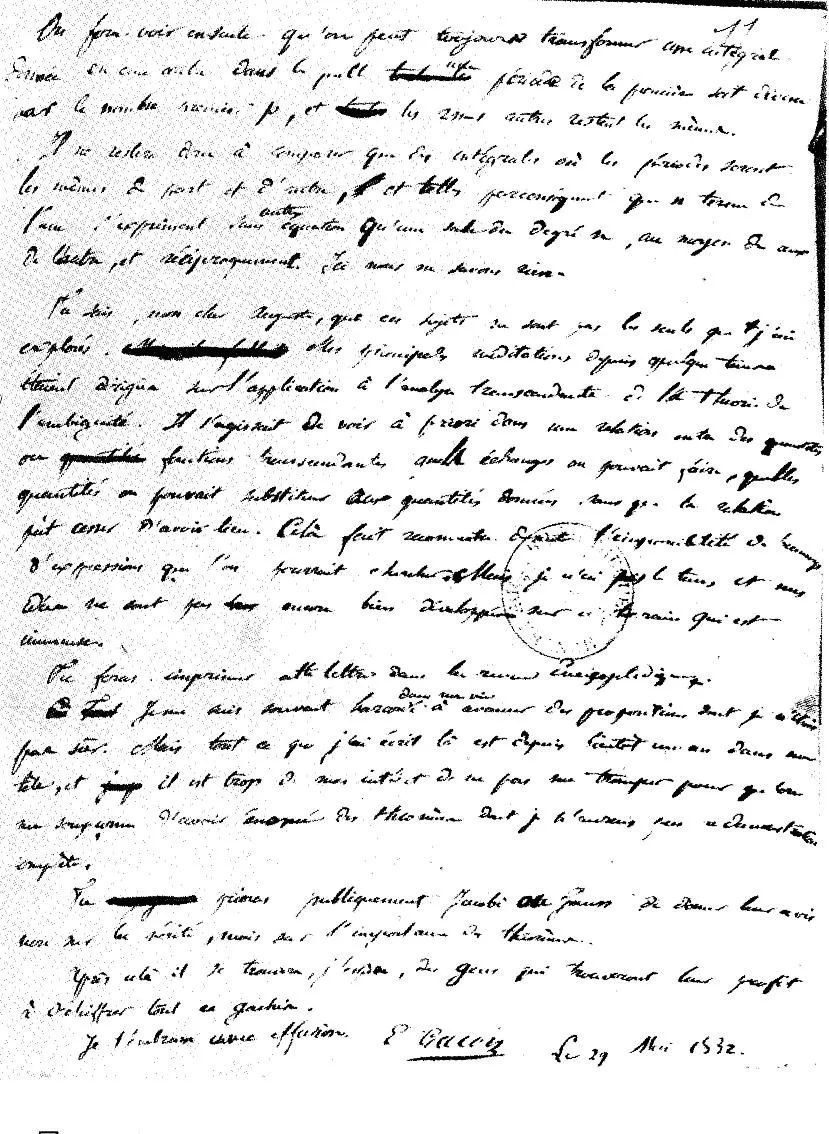 11
On fera voir ensuite qu'on peut toujours transformer une intégrale
donnée en une autre dans laquelle une période de la première soit divisée
par le nombre premier p, et les 2n-1 autres restent les mêmes.
Il ne restera donc à comparer que des intégrales où les périodes seront
les mêmes de part et d'autre, et telles par conséquent que n termes de
l'une s'expriment sans autre équation qu'une seule du degré n, au moyen de ceux
de l'autre, et réciproquement. Ici nous ne savons rien.
Tu sais, mon cher Auguste, que ces sujets ne sont pas les seuls que j'aie
explorés. Mes principales méditations depuis quelque temps
étaient dirigées sur l'application à l'analyse transcendante de la théorie de
l'ambiguité. Il s'agissait de voir à priori dans une relation entre des quantités
ou fonctions transcendantes quels échanges on pouvait faire, quelles
quantités on pouvait substituer aux quantités données sans que la relation
pût cesser d'avoir lieu. Cela fait reconnaître l'impossibilité de beaucoup
d'expressions que l'on pourrait chercher. Mais je n'ai pas le temps et mes
idées ne sont pas encore bien développées sur ce terrain qui est
immense.
Tu feras imprimer cette lettre dans la revue Encyclopédique.
Je me suis souvent hasardé dans ma vie à avancer des propositions dont je n'étais
pas sûr. Mais tout ce que j'ai écrit là est depuis bientôt un an dans ma
tête, et il est trop de mon intérêt de ne pas me tromper pour qu'on
me soupçonne d'avoir énoncé des théorèmes dont je n'aurais pas la démonstration
complète.
Tu prieras publiquement Jacobi ou Gauss de donner leur avis
non sur la vérité, mais sur l'importance des théorèmes.
Après cela il se trouvera, j'espère, des gens qui trouveront leur profit
à déchiffrer tout ce gachis.
Je t'embrasse avec effusion. E Galois Le 29 Mai 1832.